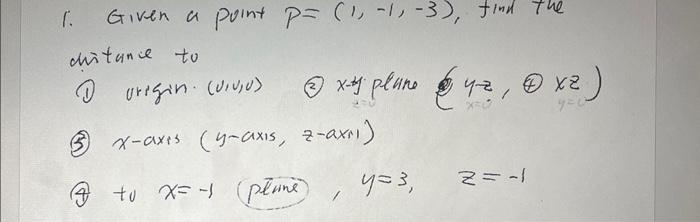 1. Given a point P = (1, -1, -3), find the
distance to
① origin (0,0,0) ② x-y plane (③ y-z, ④ xz)
z=0 x=0 y=0
⑤ x-axis (y-axis, z-axis)
④ to x = -1 (plane), y = 3, z = -1